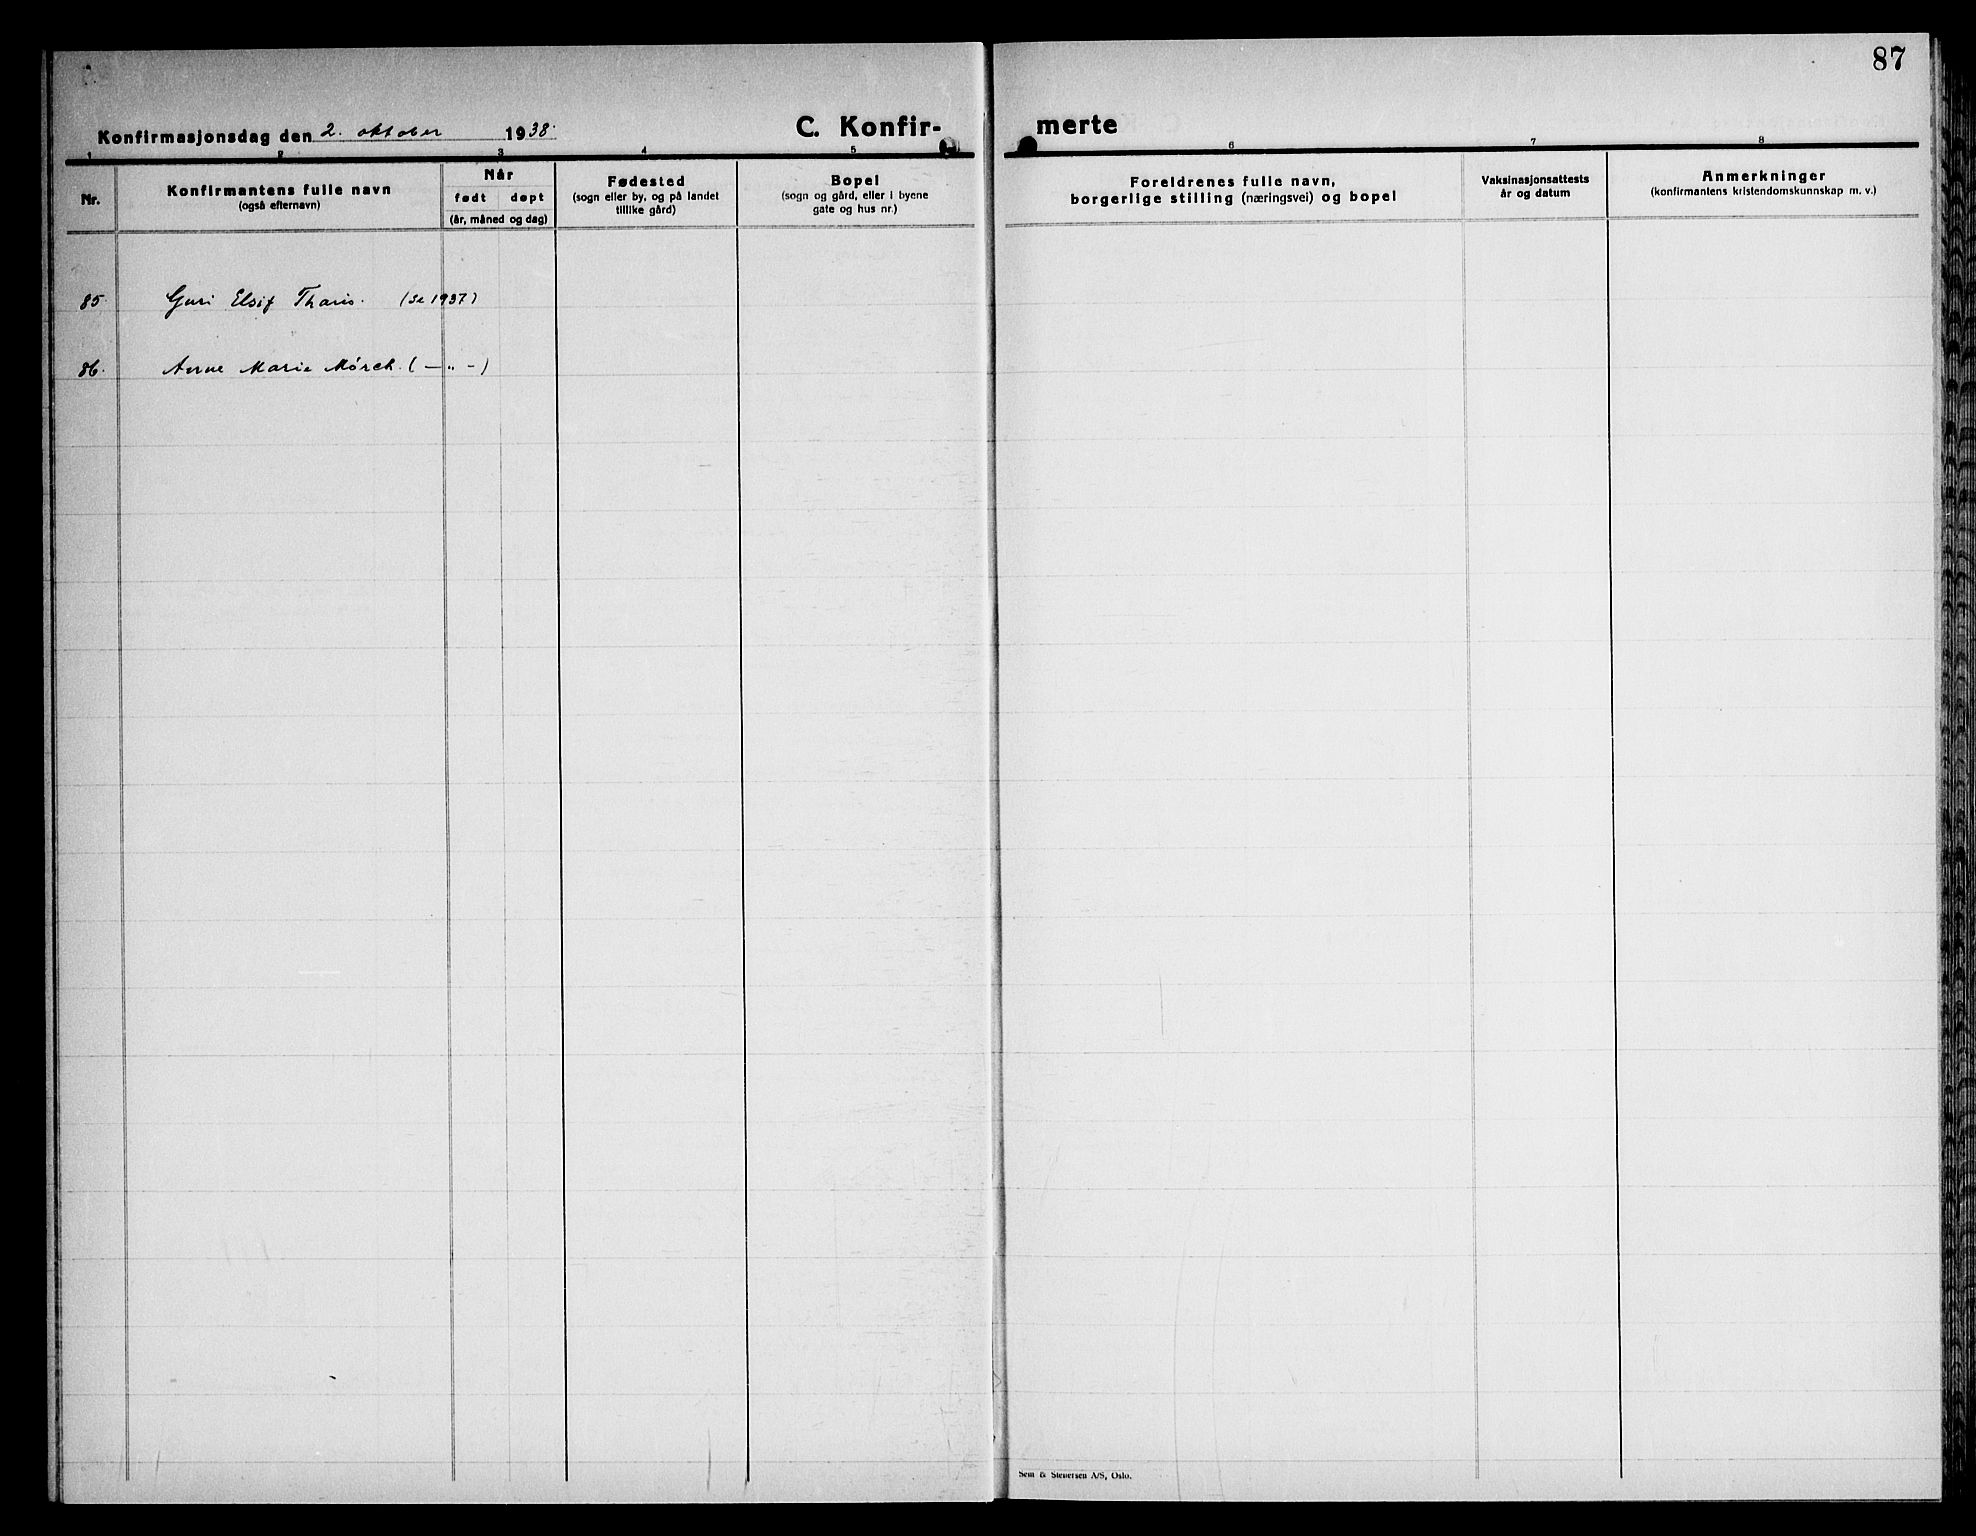 87
Konfirmasjonsdag den 2. oktober 1938.
C. Konfir-
merte
1 2 3 4 5 6 7 8
Nr.
Konfirmantens fulle navn
(også efternavn)
Når
født døpt
(år, måned og dag)
Fødested
(sogn eller by, og på landet
tillike gård)
Bopel
(sogn og gård, eller i byene
gate og hus nr.)
Foreldrenes fulle navn,
borgerlige stilling (næringsvei) og bopel
Vaksinasjonsattests
år og datum
Anmerkninger
(konfirmantens kristendomskunnskap m. v.)
85. Guri Elsif (se 1937)
86. Anne Marie Mørch. (—„—)
Sem & Stenersen A/S, Oslo.